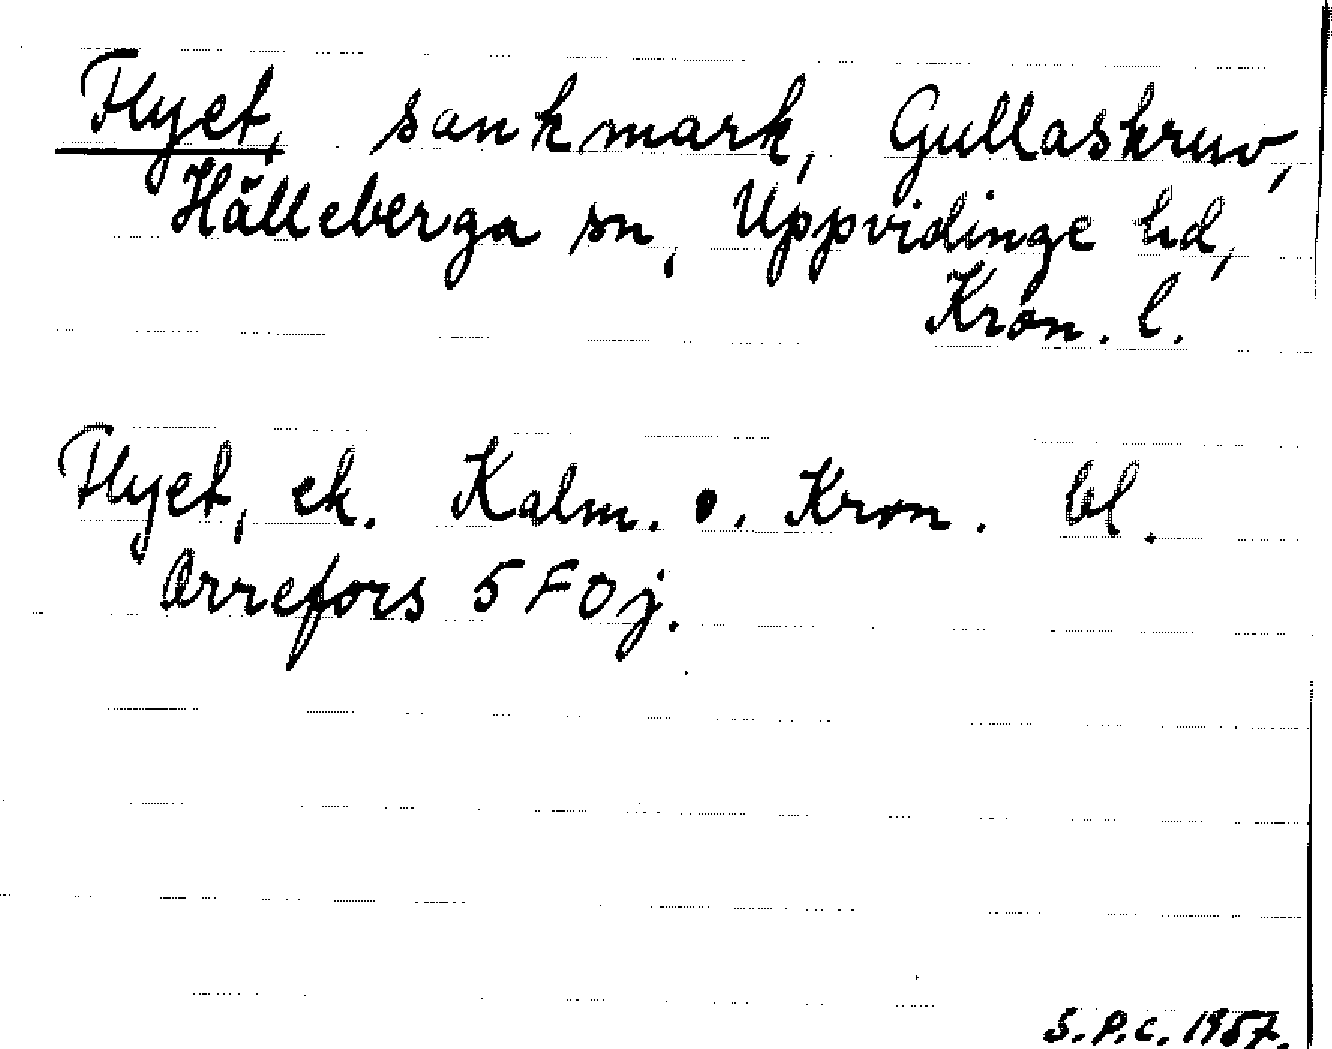 Flyet, sankmark, Gullaskruv,
Hälleberga sn, Uppvidinge hd,
Kron. l.
Flyet, ek. Kalm. o. Kron. bl.
Orrefors 5 F 0 j.
S.P.C. 1957.